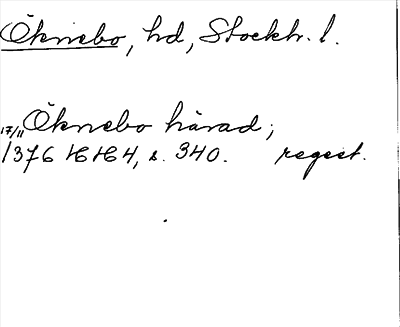 Öknebo, hd, Stockh. l.
17/11 Öknebo härad;
1376 HH 4, s. 340. regest.